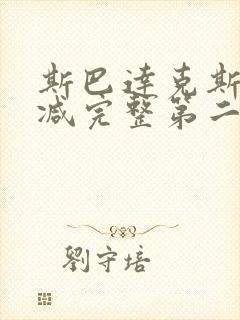 斯巴达克斯
减完整第二
劉守培